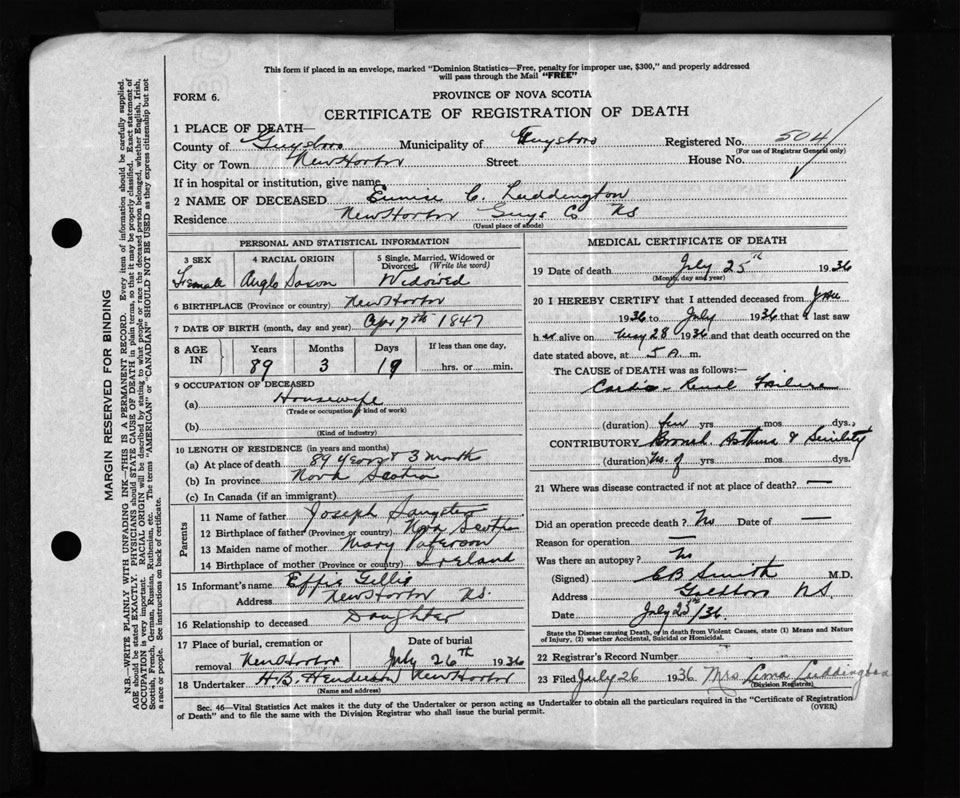 This form if placed in an envelope, marked "Dominion Statistics—Free, penalty for improper use, $300," and properly addressed
will pass through the Mail "FREE"
FORM 6.
PROVINCE OF NOVA SCOTIA
CERTIFICATE OF REGISTRATION OF DEATH
1 PLACE OF DEATH—
County of Guysboro Municipality of Guysboro Registered No. 504
(For use of Registrar General only)
City or Town New Harbor Street House No.
If in hospital or institution, give name
2 NAME OF DECEASED Eunice C. Luddington
Residence New Harbor Guys Co NS
(Usual place of abode)
PERSONAL AND STATISTICAL INFORMATION
3 SEX 4 RACIAL ORIGIN 5 Single, Married, Widowed or
Divorced, (Write the word)
Female Anglo Saxon Widowed
6 BIRTHPLACE (Province or country) New Harbor
7 DATE OF BIRTH (month, day and year) Apr 7th 1847
8 AGE IN Years Months Days If less than one day,
89 3 19 hrs. or min.
9 OCCUPATION OF DECEASED
(a) Housewife
(Trade or occupation or kind of work)
(b)
(Kind of industry)
10 LENGTH OF RESIDENCE (in years and months)
(a) At place of death 89 years & 3 month
(b) In province Nova Scotia
(c) In Canada (if an immigrant)
Parents
11 Name of father Joseph Sangster
12 Birthplace of father (Province or country) Nova Scotia
13 Maiden name of mother Mary Paterson
14 Birthplace of mother (Province or country) Ireland
15 Informant's name Effie Gillie
Address New Harbor NS.
16 Relationship to deceased Daughter
17 Place of burial, cremation or Date of burial
removal New Harbor July 26th 1936
18 Undertaker H.B. Henderson New Harbor
(Name and address)
MEDICAL CERTIFICATE OF DEATH
19 Date of death July 25th 1936
(Month, day and year)
20 I HEREBY CERTIFY that I attended deceased from
1936 to July 1936 that I last saw
h er alive on May 28 1936 and that death occurred on the
date stated above, at 5 A. m.
The CAUSE of DEATH was as follows:—
Cardio-Renal Failure
(duration) few yrs. mos. dys.
CONTRIBUTORY Bronch. Asthma & Senility
(duration) No. of yrs. mos dys.
21 Where was disease contracted if not at place of death? —
Did an operation precede death? No Date of —
Reason for operation —
Was there an autopsy? No
(Signed) CB Smith M.D.
Address NS.
Date July 25th/36
State the Disease causing Death, or in death from Violent Causes, state (1) Means and Nature
of Injury, (2) whether Accidental, Suicidal or Homicidal.
22 Registrar's Record Number
23 Filed July 26 1936 Mrs Luddington
(Division Registrar)
Sec. 46—Vital Statistics Act makes it the duty of the Undertaker or person acting as Undertaker to obtain all the particulars required in the "Certificate of Registration
of Death" and to file the same with the Division Registrar who shall issue the burial permit.
(OVER)
MARGIN RESERVED FOR BINDING
N.B.—WRITE PLAINLY WITH UNFADING INK—THIS IS A PERMANENT RECORD. Every item of information should be carefully supplied.
AGE should be stated EXACTLY. PHYSICIANS should STATE CAUSE OF DEATH in plain terms, so that it may be properly classified. Exact statement of
OCCUPATION is very important. RACIAL ORIGIN will be described by stating to what people or race the deceased person belonged, whether English, Irish,
Scottish, French, German, Russian, Ruthenian, etc. The terms "AMERICAN" or "CANADIAN" SHOULD NOT BE USED as they express citizenship but not
a race or people. See instructions on back of certificate.